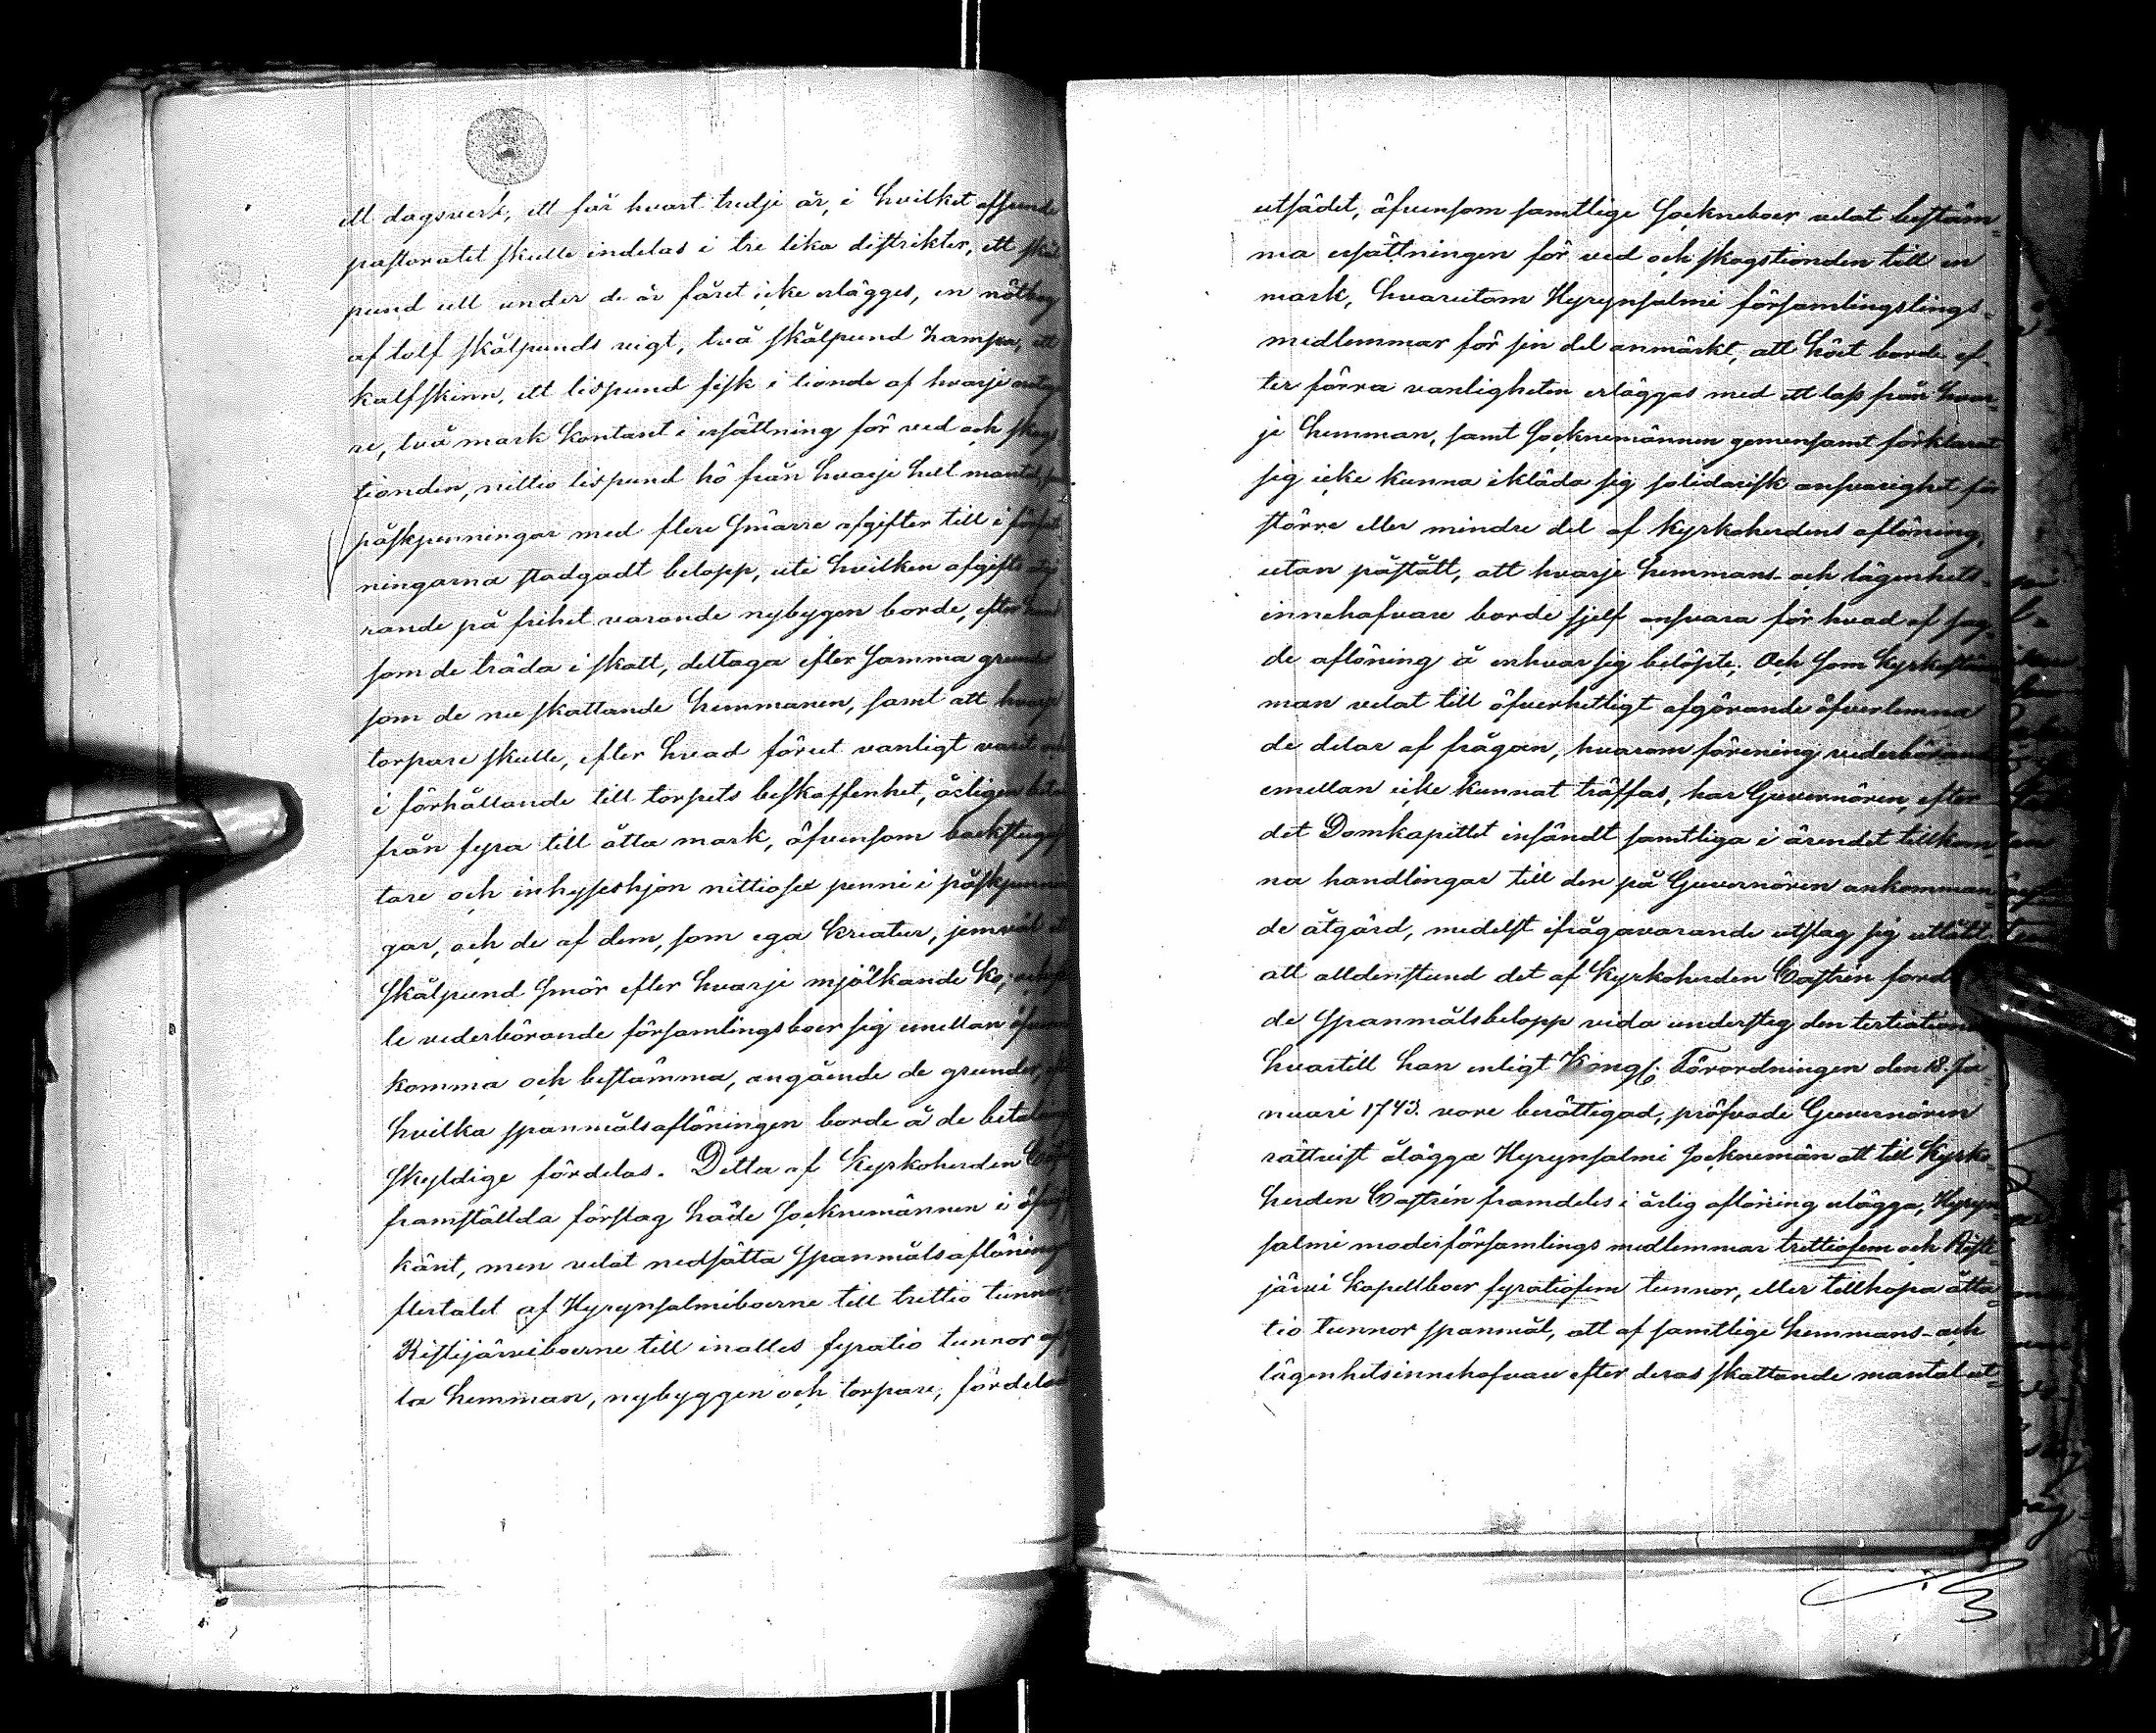 ett dagsverk, ett får hvart tredje år, i hvilket afseende
pastoratet skulle indelas i tre lika distrikter, ett skål
pund ull under de år fåret icke erlägges, en nötbog
af tolf skålpunds vigt, två skålpund hampa, ett
kalfskinn, ett lispund fisk i tionde af hvarje
re, två mark kontant i ersättning för ved och skogs
tionden, nittio lispund hö från hvarje helt mantal,
påskpenningar med flere smärre afgifter till i författ
ningarna stadgadt belopp, uti hvilken afgifts
rande på frihet varande nybyggen borde, efter hand
som de träda i skatt, deltaga efter samma grunder
som de nu skattande hemmanen, samt att hvarje
torpare skulle, efter hvad förut vanligt varit och
i förhållande till torpets beskaffenhet, årligen betala
från fyra till åtta mark, äfvensom backstugusit
tare och inhyseshjon nittiosex penni i påskpennin
gar, och de af dem, som ega kreatur, jemväl ett
skålpund smör efter hvarje mjölkande ko;
le vederbörande församlingsboer sig emellan öfverens
komma och bestämma, angående de grunder,
hvilka spanmålsaflöningen borde å de betalnings
skyldige fördelas. Detta af Kyrkoherden
framställda förslag hade Socknemännen i öfrigt
känt, men velat nedsätta Spanmålsaflöningen
flertalet af Hyrynsalmiboerne till trettio tunnor
Ristijärviboerne till inalles fyratio tunnor af
la hemman, nybyggen och torpare, fördelad
utsådet, äfvensom samtlige Sockneboer velat bestäm-
ma ersättningen för ved och skogstionden till en
mark, hvarutom Hyrynsalmi församlingslings-
medlemmar för sin del anmärkt, att höet borde ef-
ter förra vanligheten erläggas med ett lass från hvar-
je hemman, samt Socknemännen gemensamt förklarat
sig icke kunna ikläda sig solidarisk ansvarighet för
större eller mindre del af kyrkoherdens aflöning,
utan påstått, att hvarje hemmans- och lägenhets-
innehafvare borde sjelf ansvara för hvad af sag-
de aflöning å enhvar sig belöpte. Och som Kyrkostäm
man velat till öfverhetligt afgörande öfverlemna
de delar af frågan, hvarom förening vederbörande
emellan icke kunnat träffas, har Guvernören, efter
det Domkapitlet insändt samtliga i ärendet tillkom-
na handlingar till den på Guvernören ankomman-
de åtgärd, medelst ifrågavarande utslag sig utlåtit
att alldenstund det af Kyrkoherden Castrén ford
de Spanmålsbelopp vida understeg den tertialtionde
hvartill han enligt Kongl. Förordningen den 18. Ja-
nuari 1743. vore berättigad, pröfvade Guvernören
rättvist ålägga Hyrynsalmi Socknemän att till Kyrko-
herden Castrén framdeles i årlig aflöning erlägga, Hyryn-
salmi moderförsamlings medlemmar trettiofem och Risti
järvi kapellboer fyratiofem tunnor, eller tillhopa åtta-
tio tunnor spanmål, att af samtlige hemmans- och
lägenhetsinnehafvare efter deras skattande mantal ut-